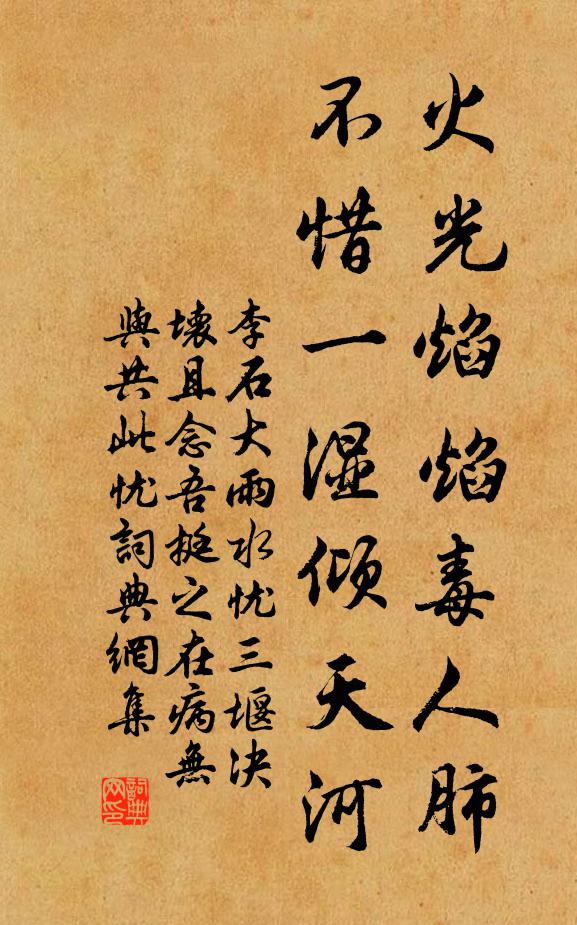 火光焰焰毒人肺
不惜一湿倾天河
李石大雨水忧三堰决
壊且念吾挺之在病無
與共此忧詞典網集
詞典网印